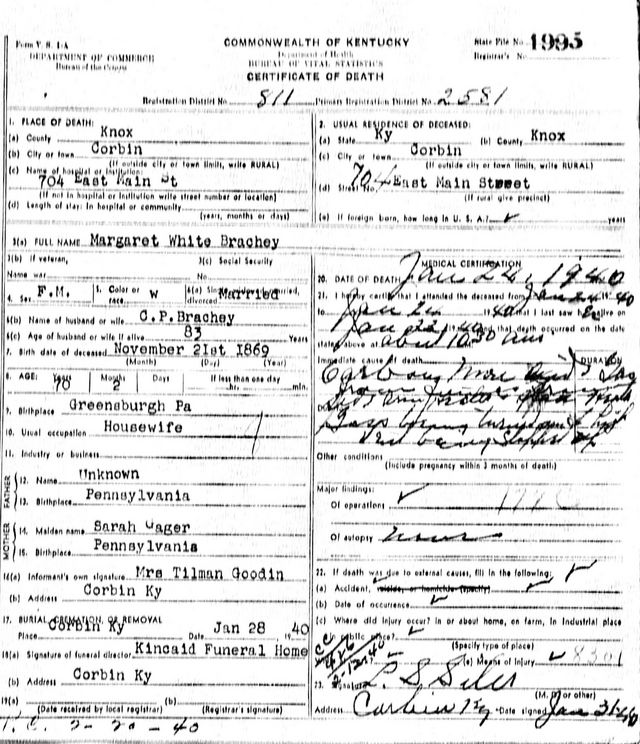 Form V. S. 1-A
DEPARTMENT OF COMMERCE
Bureau of the Census
COMMONWEALTH OF KENTUCKY
Department of Health
BUREAU OF VITAL STATISTICS
CERTIFICATE OF DEATH
State File No. 1995
Registrar's No.
Registration District No. 811 Primary Registration District No. 2581
1. PLACE OF DEATH:
(a) County Knox
(b) City or town Corbin
(If outside city or town limits, write RURAL)
(c) Name of hospital or institution:
704 East Main St
(If not in hospital or institution write street number or location)
(d) Length of stay: In hospital or community
(years, months or days)
2. USUAL RESIDENCE OF DECEASED:
(a) State Ky (b) County Knox
(c) City or town Corbin
(If outside city or town limits, write RURAL)
(d) Street No. 704 East Main Street
(If rural give precinct)
(e) If foreign born, how long in U. S. A.? years
3(a) FULL NAME Margaret White Brachey
3(b) If veteran, 3(c) Social Security
Name war No.
4. Sex F.M. 5. Color or race W 6(a) Single, widowed, married, divorced Married
6(b) Name of husband or wife C.P.Brachey
6(c) Age of husband or wife if alive 83 Years
7. Birth date of deceased November 21st 1869
(Month) (Day) (Year)
8. AGE: Years 70 Months 2 Days If less than one day
hr. min.
9. Birthplace Greensburgh Pa
10. Usual occupation Housewife
11. Industry or business
FATHER
12. Name Unknown
13. Birthplace Pennsylvania
MOTHER
14. Maiden name Sarah Gager
15. Birthplace Pennsylvania
16(a) Informant's own signature Mrs Tilman Goodin
(b) Address Corbin Ky
17. BURIAL, CREMATION, OR REMOVAL
Place Corbin Ky Date Jan 28 1940
18(a) Signature of funeral director Kincaid Funeral Home
(b) Address Corbin Ky
19(a) (b)
(Date received by local registrar) (Registrar's signature)
2-20-40
MEDICAL CERTIFICATION
20. DATE OF DEATH Jan 24, 1940
21. I hereby certify that I attended the deceased from Jan 24 1940
to Jan 24 1940 that I last saw alive on
Jan 1940 and that death occurred on the date
stated above at about 10:30 am
Immediate cause of death DURATION
Carbon Mon Gas
Other conditions
(Include pregnancy within 3 months of death)
Major findings:
Of operations
Of autopsy none
22. If death was due to external causes, fill in the following:
(a) Accident, suicide, or homicide (specify)
(b) Date of occurrence
(c) Where did injury occur? In or about home, on farm, in industrial place
public place?
(Specify type of place)
(e) Means of Injury
23. Signature L. S. Siler
(M. D. or other)
Address Corbin Ky Date signed Jan 31-40